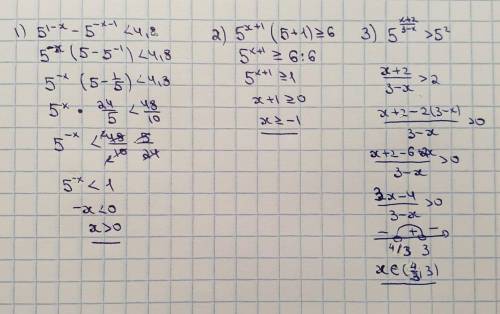 1) 5^{1-x} - 5^{-x-1} < 4,8
5^{-x} (5 - 5^{-1}) < 4,8
5^{-x} (5 - 1/5) < 4,8
5^{-x} • 24/5 < 48/10
5^{-x} < 48/10 5/24
5^{-x} < 1
-x < 0
x > 0
2) 5^{x+1} (5+1) ≥ 6
5^{x+1} ≥ 6:6
5^{x+1} ≥ 1
x+1 ≥ 0
x ≥ -1
3) 5^{(x+2)/(3-x)} > 5^2
(x+2)/(3-x) > 2
(x+2-2(3-x))/(3-x) > 0
(x+2-6+2x)/(3-x) > 0
(3x-4)/(3-x) > 0
- + -
4/3 3
x ∈ (4/3, 3)